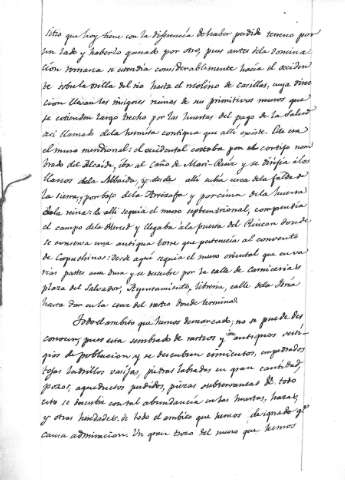 sitio que hoy tiene con la diferencia de haber perdido terreno por
un lado y haberlo ganado por otro, pues antes de la domina-
cion romana se estendia considerablemente hacia el occiden-
te sobre la orilla del rio hasta el molino de Casillas, cuya direc-
cion llevan las insignes ruinas de sus primitivos muros que
se estienden largo trecho por las huertas del pago de la Salud
asi llamado de la hermita contigua que alli existe. Este era
el muro meridional: el occidental costeaba por el cortijo nom-
brado del Alcaide, iba al Caño de Mari-Ruiz y se dirijia á los
llanos de la Albaida, y desde alli subia cerca de la falda de
la sierra, por bajo de la Arrizafa y por cima de la huerta
de la reina: de alli seguia el muro septentrional, comprendia
el campo de la Merced y llegaba á la puerta del Rincon donde
se conserva una antigua torre que pertenecia al convento
de Capuchinos: desde aqui seguia el muro oriental que en va-
rias partes aun dura y se descubre por la calle de Carniceria
plaza del Salvador, Ayuntamiento, Libreria, calle de la Feria
hasta dar en la cruz del rastro donde termina.
Todo el ambito que hemos demarcado, no se puede des-
conocer, pues esta sembrado de rastros y antiguos vesti-
gios de poblacion y se descubren cimientos, empedrados
tejas ladrillos vasijas, piedras labradas en gran cantidad,
pozos, aqueductos perdidos, piezas subterraneas &. todo
esto se descubre con tal abundancia en las huertas, hazas,
y otras heredades de todo el ambito que hemos designado q.e
causa admiracion. Un gran trozo del muro que hemos